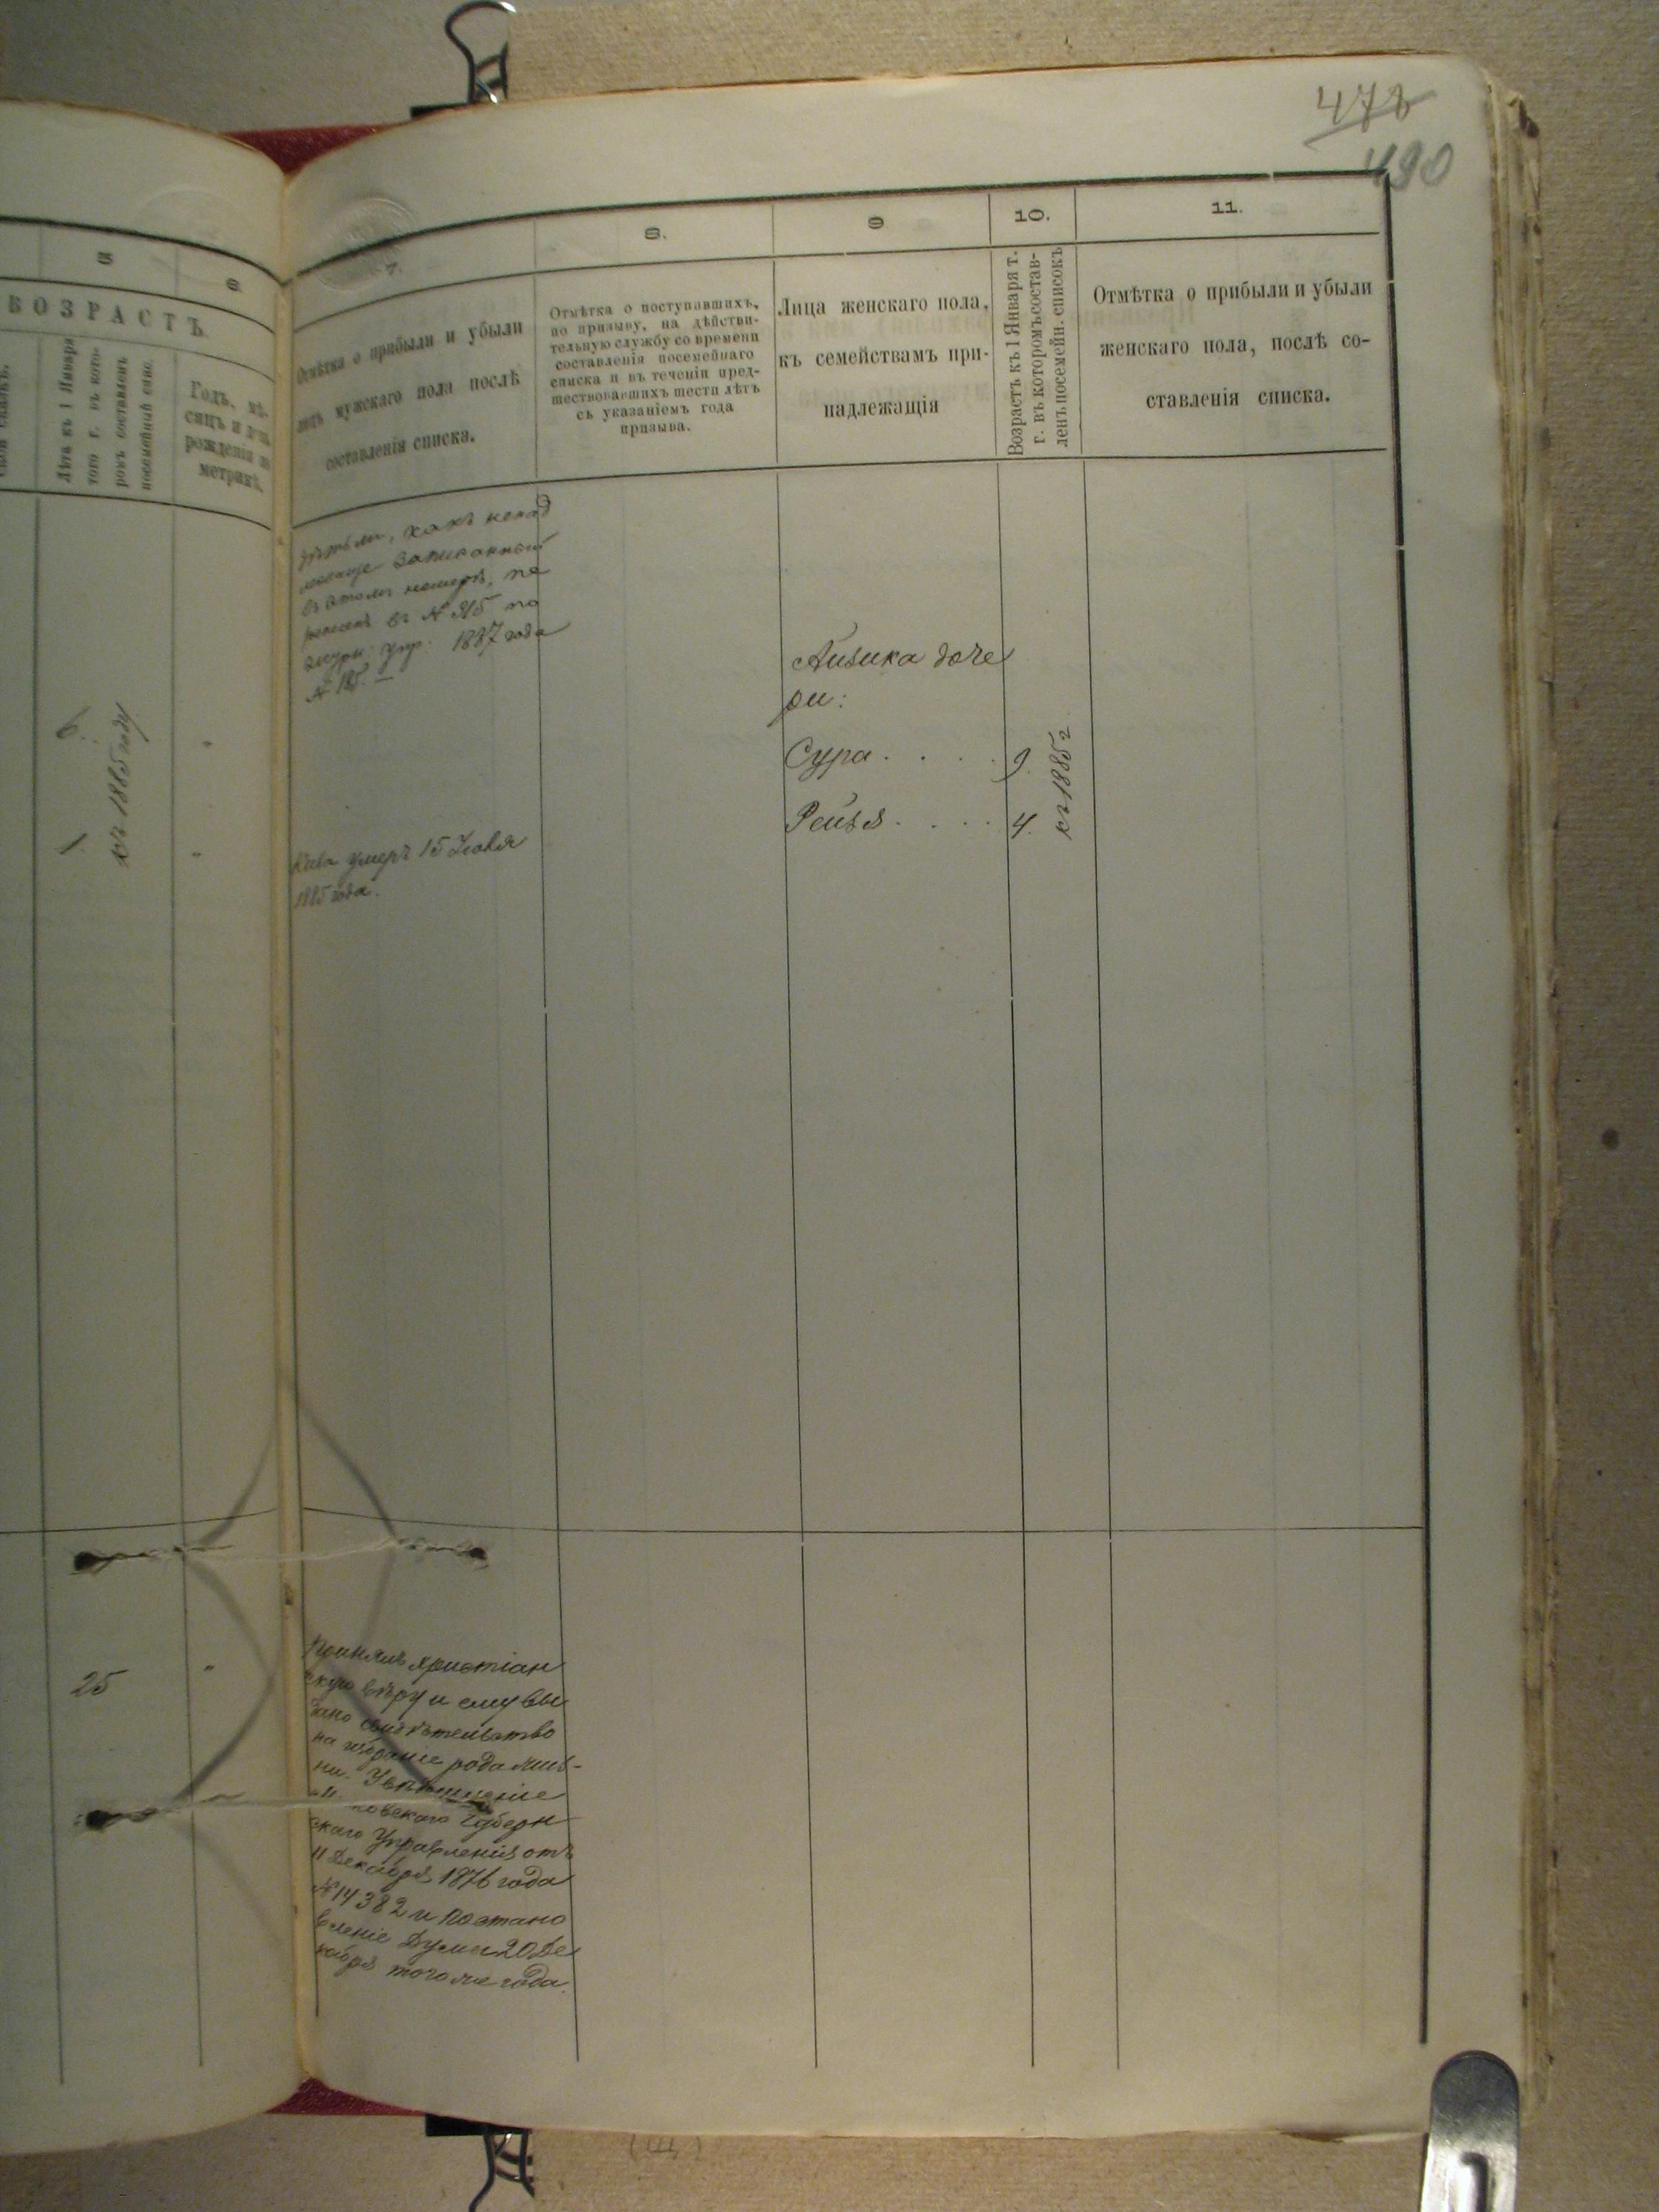 478
490
5
6
ВОЗРАСТЪ.
Лѣта къ 1 Января
того г. въ кото-
ромъ составленъ
посемейный спис.
Годъ, мѣ-
сяцъ и день
рожденія по
метрикѣ.
6.
1.
къ 1885 году
25
7.
8.
9
10.
11.
Отмѣтка о прибыли и убыли
лицъ мужскаго пола послѣ
составленія списка.
Отмѣтка о поступавшихъ,
по призыву, на дѣйстви-
тельную службу со времени
составленія посемейнаго
списка и въ теченіи пред-
шествовавшихъ шести лѣтъ
съ указаніемъ года
призыва.
Лица женскаго пола,
къ семействамъ при-
надлежащія
Возрастъ къ 1 Января т.
г. въ которомъ состав-
ленъ посемейн. списокъ
Отмѣтка о прибыли и убыли
женскаго пола, послѣ со-
ставленія списка.
какъ
записанный
въ этомъ номерѣ, пе
въ № 315 по
журн: Упр: 1887 года
№ 185.
умеръ 15 Іюля
1885 года.
Айзика доче
ри:
Сура . . . . 9.
Рейзя . . . . 4.
къ 1885 г
Принялъ христіан
скую вѣру и ему вы
дано свидѣтельство
на избраніе рода жиз-
ни. Увѣдомленіе
ковскаго Губерн
скаго Управленія отъ
11 Декабря 1876 года
№ 14382 и Постано
вленіе Думы 20 Де
кабря того же года.